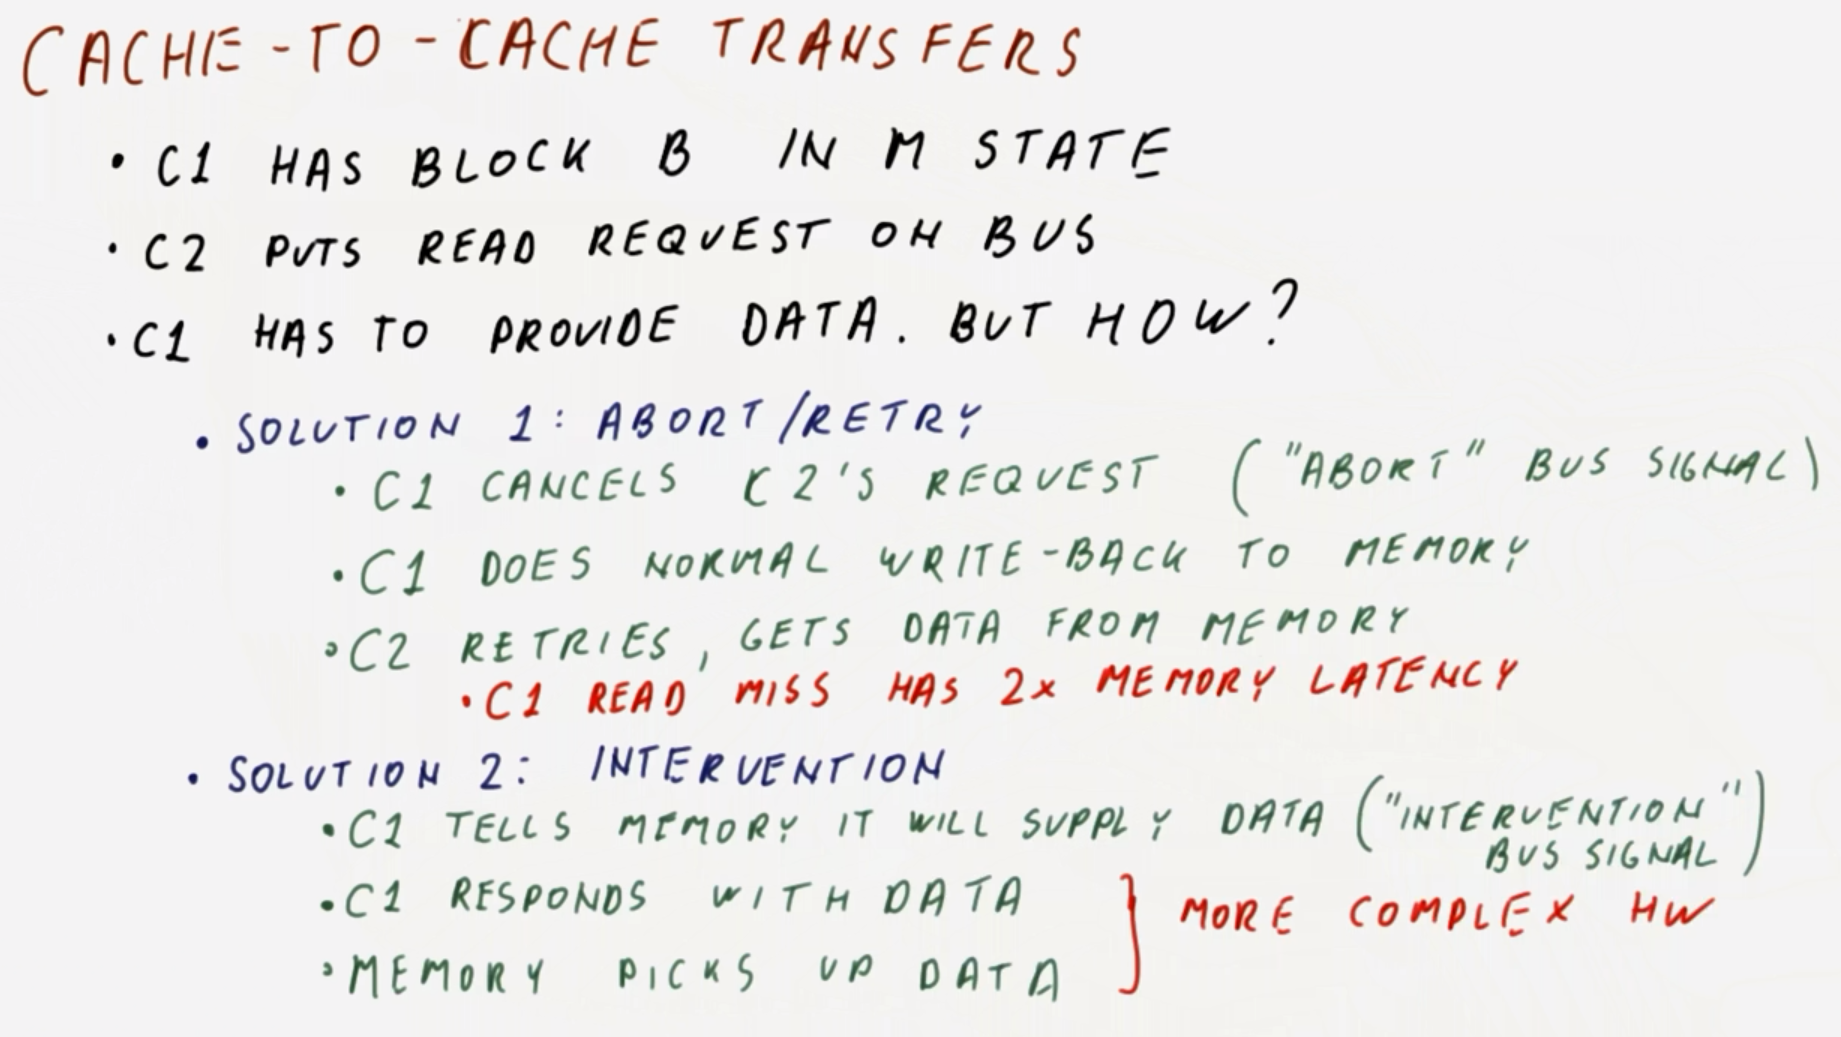 CACHE-TO-CACHE TRANSFERS
• C1 HAS BLOCK B IN M STATE
• C2 PUTS READ REQUEST ON BUS
• C1 HAS TO PROVIDE DATA. BUT HOW?
• SOLUTION 1: ABORT/RETRY
• C1 CANCELS C2'S REQUEST ("ABORT" BUS SIGNAL)
• C1 DOES NORMAL WRITE-BACK TO MEMORY
• C2 RETRIES, GETS DATA FROM MEMORY
• C1 READ MISS HAS 2x MEMORY LATENCY
• SOLUTION 2: INTERVENTION
• C1 TELLS MEMORY IT WILL SUPPLY DATA ("INTERVENTION"
BUS SIGNAL)
• C1 RESPONDS WITH DATA
MORE COMPLEX HW
• MEMORY PICKS UP DATA